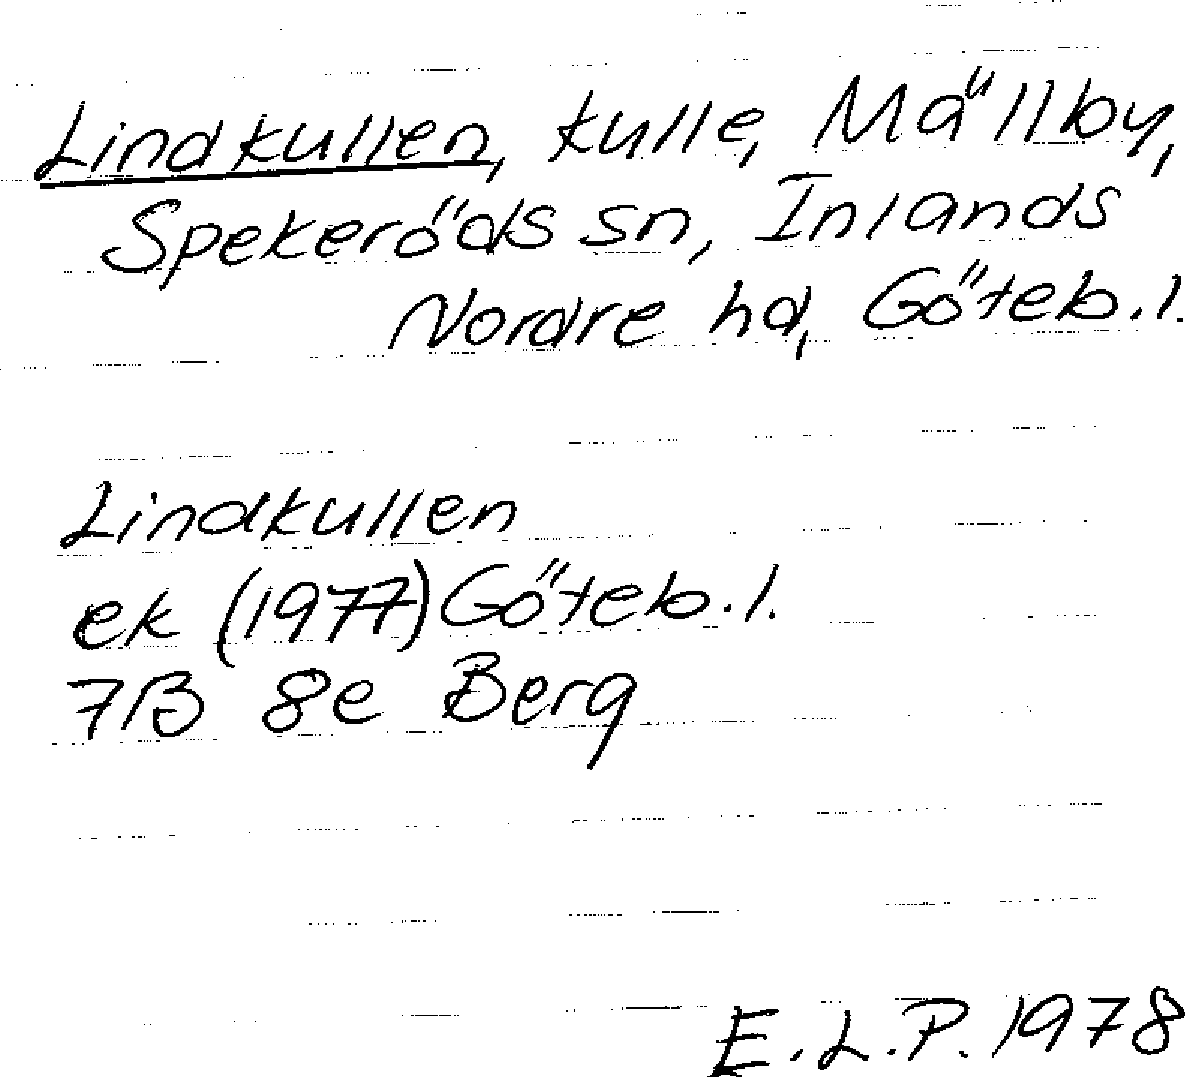 Lindkullen, kulle, Mällby,
Spekeröds sn, Inlands
Nordre hd, Göteb.l.
Lindkullen
ek (1977) Göteb.l.
7B 8e Berg
E.L.P. 1978